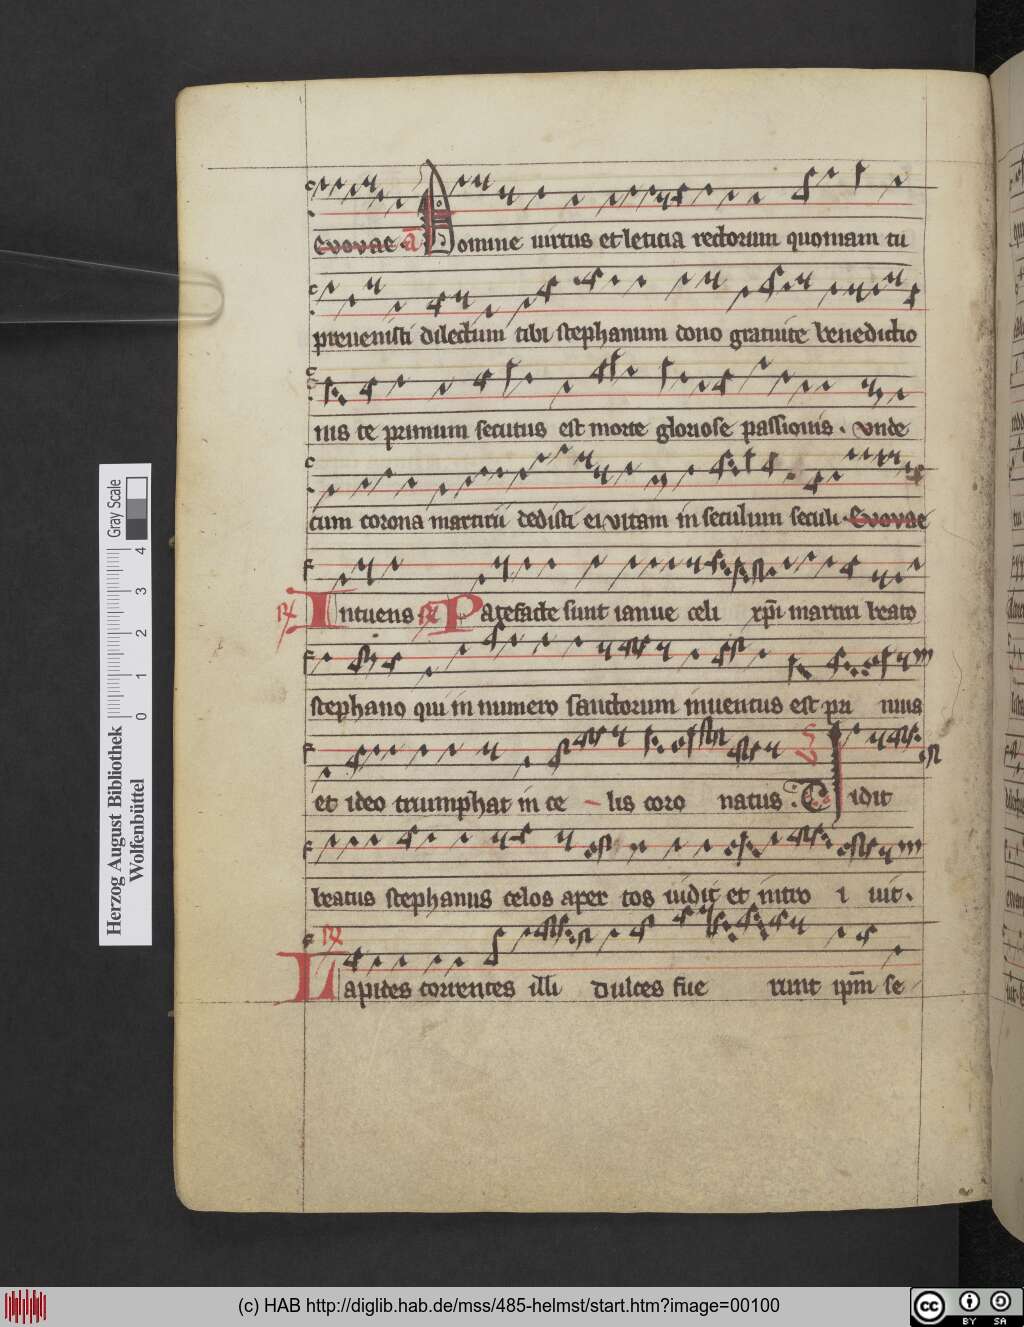 Euouae a Domine uirtus et leticia rectorum quoniam tu
preuenisti dilectum tibi stephanum dono gratuite benedictio
nis te primum secutus est morte gloriose passionis. vnde
cum corona martirii dedisti ei vitam in seculum seculi. Euouae
Intuens Patefacte sunt ianue celi xpi martiri beato
stephano qui in numero sanctorum inuentus est pri mus
et ideo triumphat in ce lis coro natus. Uidit
beatus stephanus celos aper tos uidit et intro i uit.
Lapides torrentes illi dulces fue runt ipm se
Gray Scale
0 1 2 3 4
Herzog August Bibliothek
Wolfenbüttel
(c) HAB http://diglib.hab.de/mss/485-helmst/start.htm?image=00100
cc BY SA